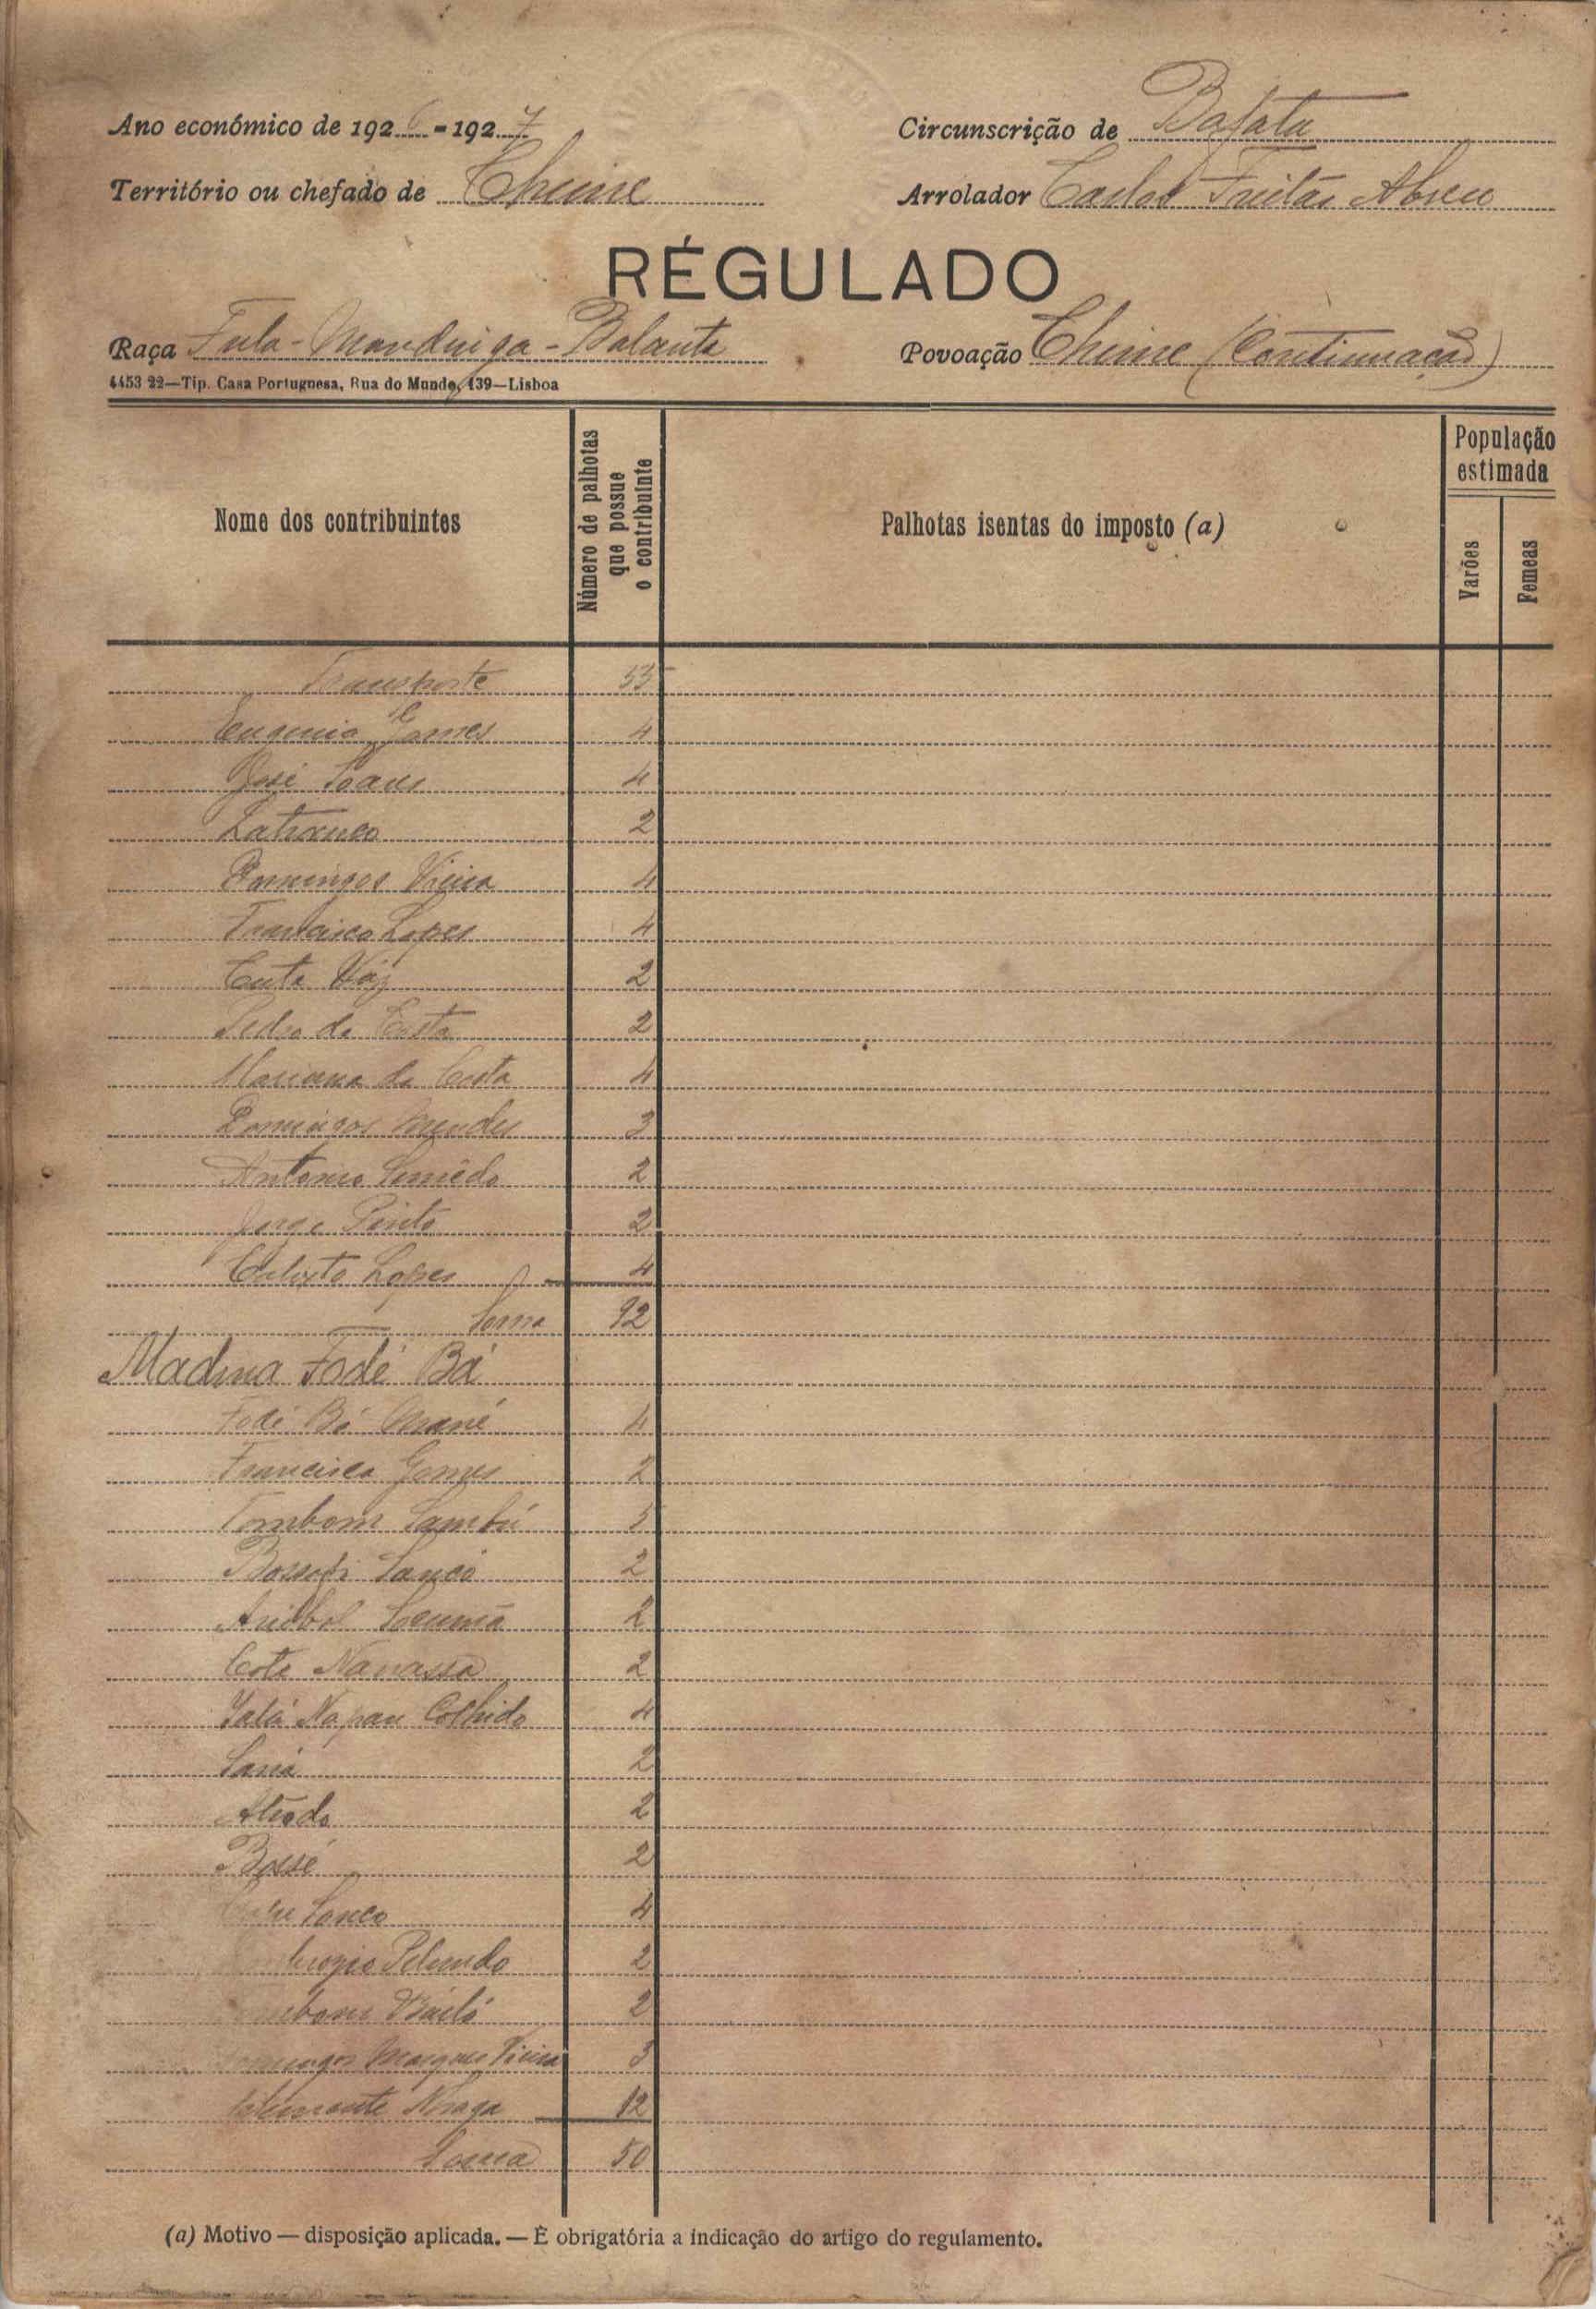 Ano económico de 1926-1927
Circunscrição de Bafatá
Território ou chefado de Chime
Arrolador Carlos Freitas Abreu
RÉGULADO
Raça Fula-Mandinga-Balanta
Povoação Chime (Continuação)
4453 22—Tip. Casa Portuguesa, Rua do Mundo, 139—Lisboa
Nome dos contribuintes
Número de palhotas que possue o contribuinte
Palhotas isentas do imposto (a)
População estimada
Varões
Femeas
Transporte 55
Eugenia Gomes 4
José 4
2
Domingos Vieira 4
Francisco Lopes 4
Vaz 2
Pedro da Costa 2
Mariana da Costa 4
Domingos Mendes 3
Antonio Semedo 2
Jorge Pinto 2
Lopes 4
Soma 92
Madina Fodé Bá
Fodé Bá Mané 4
Francisco Gomes 2
Tombom Sambú 5
Sancó 2
2
Cote Nanassa 2
Ialá Na pau Colhido 4
Saná 2
2
Bossé 2
Sanco 4
Pelundo 2
2
Domingos Marques Vieira 3
12
Soma 50
(a) Motivo — disposição aplicada. — É obrigatória a indicação do artigo do regulamento.